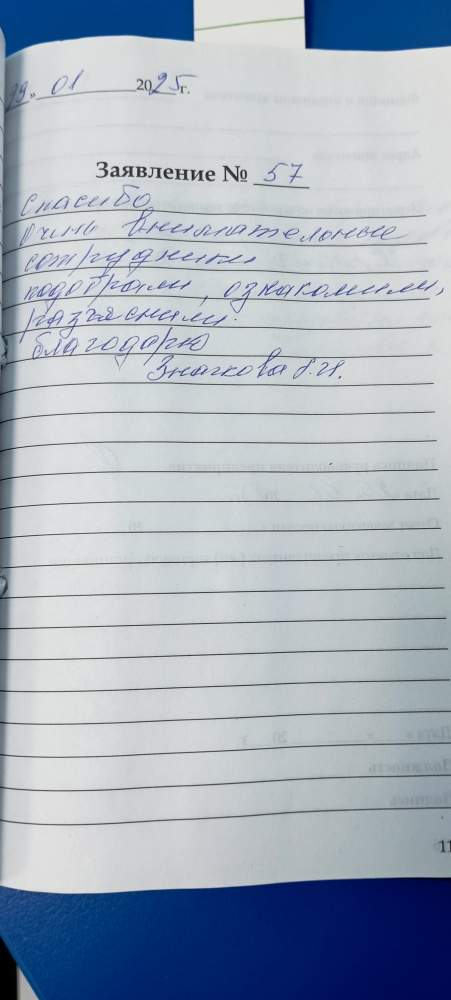 29 » 01 2025 г.
Заявление № 57
Спасибо
Очень внимательные
сотрудники
подобрали, ознакомили,
разъяснили.
благодарю
Значкова
11